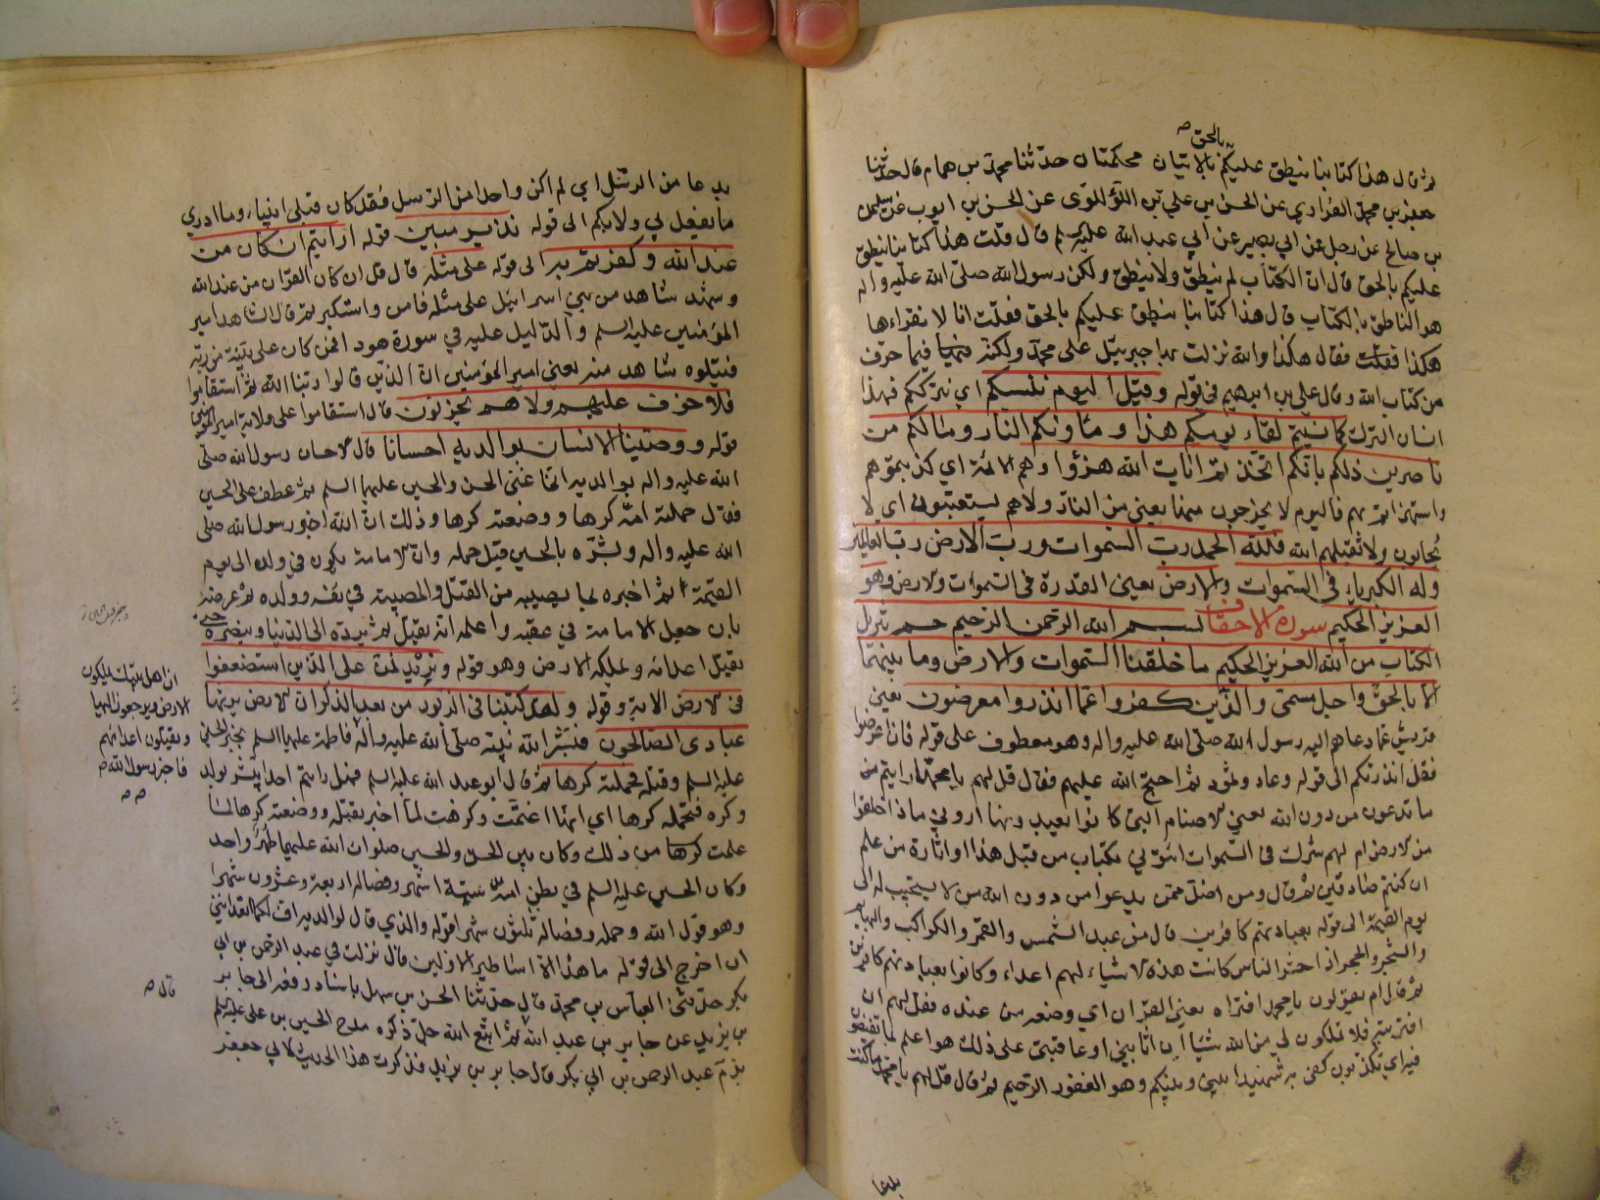 بالحق صح
ثم قال هذا كتابنا ينطق عليكم بالايتان محكمتان حدثنا محمد بن همام قال حدثنا
جعفر بن محمد الفزاري عن الحسن بن علي عن الحسن بن ايوب عن سليمن
بن صالح عن رجل عن ابي بصير عن ابي عبد الله عليه السلم قال قلت هذا كتابنا ينطق
عليكم بالحق قال ان الكتاب لم ينطق ولا ينطق ولكن رسول الله صلى الله عليه واله
هو الناطق بالكتاب قال هذا كتابنا ينطق عليكم بالحق فقلت انا لا نقراءها
هكذا فقال هكذا والله نزلت بها جبرئيل على محمد ولكنه فيما حرف
من كتاب الله وقال علي بن ابرهيم في قوله وقيل اليوم ننسيكم اي نترككم فهذا
انسان الترك كما نسيتم لقاء يومكم هذا وماونكم النار وما لكم من
ناصرين ذلكم بانكم اتخذتم ايات الله هزوا وهم الائمة اي كذبتموهم
واستهزاتم بهم فاليوم لا يخرجون منها يعني من النار ولا هم يستعتبون اي لا
يجابون ولا تقيلهم الله فلله الحمد رب السموات ورب الارض رب العالمين
وله الكبرياء في السموات والارض يعني القدرة في السموات والارض وهو
العزيز الحكيم سورة الاحقاف بسم الله الرحمن الرحيم حم تنزيل
الكتاب من الله العزيز الحكيم ما خلقنا السموات والارض وما بينهما
الا بالحق واجل مسمى والذين كفروا عما انذروا معرضون يعني
قريش عما دعاهم اليه رسول الله صلى الله عليه واله وهو معطوف على قوله فان اعرضوا
فقل انذرتكم الى قوله وعاد وثمود ثم احتج الله عليهم فقال قل لهم يا محمد ارايتم من
ما تدعون من دون الله يعني الاصنام التي كانوا يعبدونها اروني ماذا خلقوا
من الارض ام لهم شرك في السموات ائتوني بكتاب من قبل هذا او اثارة من علم
ان كنتم صادقين ثم قال ومن اضل ممن يدعوا من دون الله من لا يستجيب له الى
يوم القيمة الى قوله بعبادتهم كافرين قال من عبد الشمس والقمر والكواكب والبهايم
والشجر والحجر اذا حشر الناس كانت هذه الاشياء لهم اعداء وكانوا بعبادتهم كافرين
ثم قال ام يقولون يا محمد افتراه يعني القران اي وضعه من عنده فقل لهم ان
افتريته فلا تملكون لي من الله شيئا ان اثابني او عاقبني على ذلك هو اعلم بما تفيضون
فيه اي تكذبون كفى به شهيدا بيني وبينكم وهو الغفور الرحيم ثم قال قل لهم يا محمد ما كنت
بدعا
بدعا من الرسل اي لم اكن واحدا من الرسل فقد كان قبلي انبياء وما ادري
ما يفعل بي ولا بكم الى قوله نذير مبين قوله ارايتم ان كان من
عند الله وكفرتم به الى قوله على مثله قال قل ان كان القران من عند الله
وشهد شاهد من بني اسرائيل على مثله فامن واستكبرتم قال الشاهد امير
المؤمنين عليه السلم والدليل عليه في سورة هود افمن كان على بينة من ربه
فيتلوه شاهد منه يعني امير المؤمنين ان الذين قالوا ربنا الله ثم استقاموا
فلا خوف عليهم ولا هم يحزنون قال استقاموا على ولاية امير المؤمنين
قوله ووصينا الانسان بوالديه احسانا قال الاحسان رسول الله صلى
الله عليه واله بوالديه انما عنى الحسن والحسين عليهما السلم ثم عطف على الحسين
فقال حملته امه كرها ووضعته كرها وذلك ان الله اخبر رسول الله صلى
الله عليه واله وبشره بالحسين قبل حمله وان الامامة يكون في ولده الى يوم
القيمة ثم اخبره بما يصيبه من القتل والمصيبة في نفسه وولده ثم عوضه
بان جعل الامامة في عقبه واعلمه انه يقتل ثم يرده الى الدنيا وينصره حتى
يقتل اعدائه ويملكه الارض وهو قوله ونريد ان نمن على الذين استضعفوا
في الارض الاية وقوله ولقد كتبنا في الزبور من بعد الذكر ان الارض يرثها
عبادي الصالحون فبشر الله نبيه صلى الله عليه واله فاطمة عليها السلم بخبر الحسين
عليه السلم وقتله فحملته كرها ثم قال ابو عبد الله عليه السلم فهل رايتم احدا يبشر بولد
وكره فتحمله كرها اي انها اغتمت وكرهت لما اخبر بقتله ووضعته كرها لما
علمت كرها من ذلك وكان بين الحسن والحسين صلوات الله عليهما طهر واحد
وكان الحسين عليه السلم في بطن امه ستة اشهر وفصاله اربعة وعشرون شهرا
وهو قول الله وحمله وفصاله ثلثون شهرا قوله والذي قال لوالديه اف لكما اتعدانني
ان اخرج الى قوله ما هذا الا اساطير الاولين قال نزلت في عبد الرحمن بن ابي
بكر حدثني العباس بن محمد قال حدثنا الحسن بن سهل باسناد رفعه الى جابر
بن يزيد عن جابر بن عبد الله ثم اتبع الله جل ذكره مدح الحسين بن علي عليه السلم
بذم عبد الرحمن بن ابي بكر قال جابر بن يزيد فذكرت هذا الحديث لابي جعفر
ان اهل بيتك يملكون
الارض ويرجعون اليها
ويقتلون اعدائهم
فاخبر رسول الله صح
قال صح